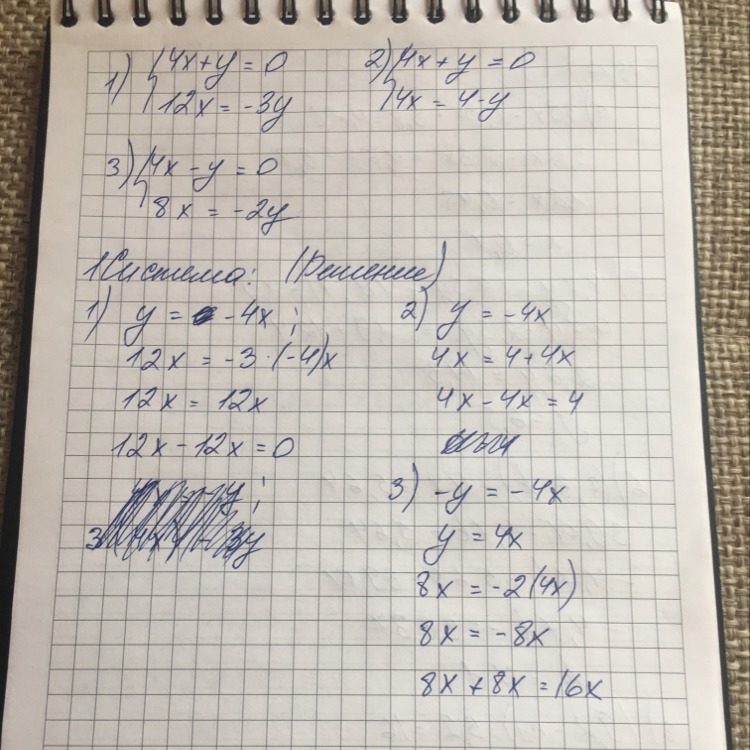 1) { 4x + y = 0
12x = -3y
2) { 4x + y = 0
4x = 4 - y
3) { 4x - y = 0
8x = -2y
1 Система: (Решение)
1) y = -4x ;
12x = -3 · (-4)x
12x = 12x
12x - 12x = 0
2) y = -4x
4x = 4 + 4x
4x - 4x = 4
3) -y = -4x
y = 4x
8x = -2(4x)
8x = -8x
8x + 8x = 16x